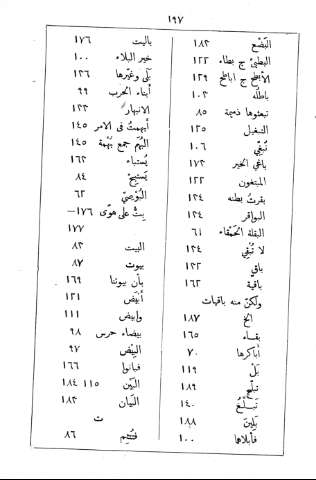 ١٩٧
البَضْع ١٨٣
البطئ ج بطاء ١٢٢
الأبطح ج اباطح ١٢٩
باطلُه ١٠٣
تبعثوها ذميمة ٨٥
التبغيل ١٢٥
تُبقِي ١٠٦
باغي الخير ١٧٣
المبتغون ١٢٢
بقرتُ بطنه ١٢٤
البواقر ١٢٤
البقلة الحَمْقاء ٦١
لا تُبْقِي ١٢٤
باقٍ ١٢٢
باقية ١٦٢
ولكنْ منه باقيات
الخ ١٨٧
بقاء ١٦٥
أباكرها ٧٠
بَلْ ١١٩
تبلّج ١٨٩
نَبلُغُ ١٤٠
بَلِينَ ١٨٨
فأبلاهما ١٠٠
باليت ١٧٦
خير البلاء ١٠٠
بَلَى وغيّرها ١٢٦
أبناء الحرب ٩٩
الانبهار ١٢٣
أبهمتُ فى الامر ١٤٥
البُهَم جمع بُهْمة ١٤٥
يُستباء ١٦٢
يَستبيح ٨٤
البُوصِيّ ٦٢
بِتُّ على هوًى ١٧٦–
١٧٧
البيت ٨٢
بيوت ٨٧
بأن بيوتنا ١٦٩
أبيَض ١٢١
وابيض ١١١
بيضاء حرس ٩٨
البيْض ٩٧
فبانوا ١٦٦
البَيْن ١١٥ ١٨٤
البَيان ١٨٣
ت
فتُتْئِم ٨٦